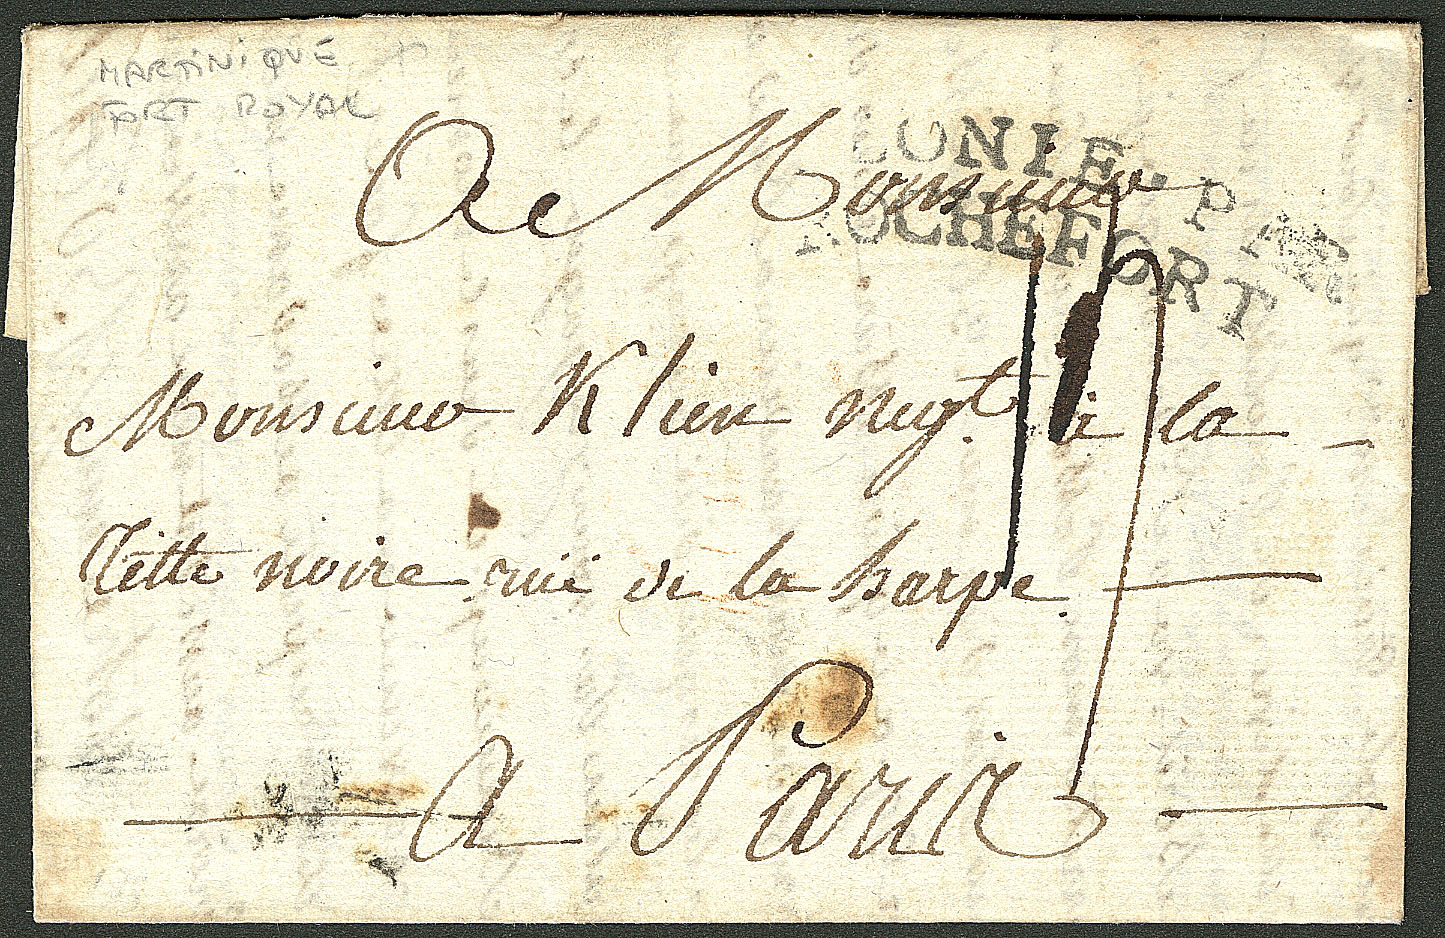 MARTINIQUE
FORT ROYAL
A Monsieur
LONIE. PAR
ROCHEFORT
Monsieur Klien negt. à la
Tette noire rue de la harpe.
A Paris